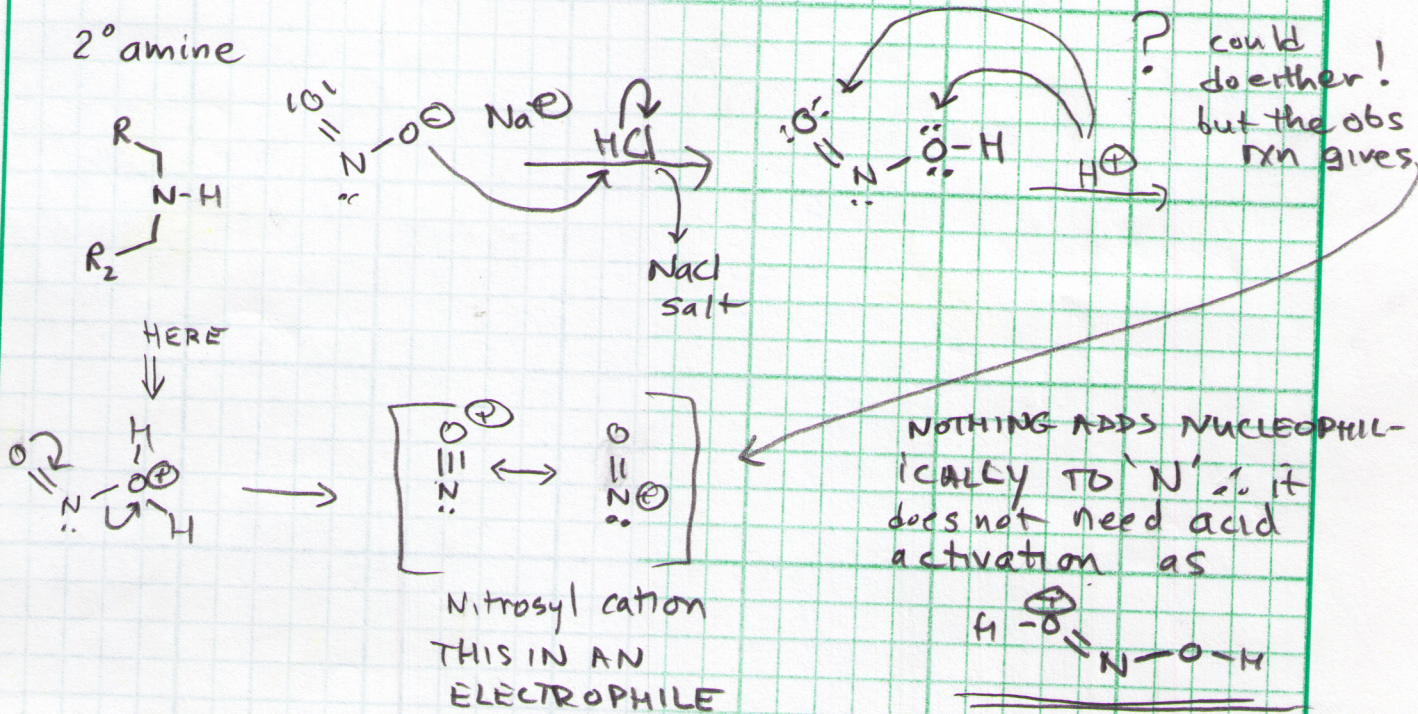 2° amine
R
N-H
R₂
(O)
N
O⊖
Na⊕
HCl
NaCl
salt
O
N
O-H
H⊕
? could
do either!
but the obs
rxn gives
HERE
H
O
N
O⊕
H
O⊕
N
O
N⊕
Nitrosyl cation
THIS IN AN
ELECTROPHILE
NOTHING ADDS NUCLEOPHIL-
ICALLY TO 'N' ∴ it
does not need acid
activation as
H-O⊕
N-O-H